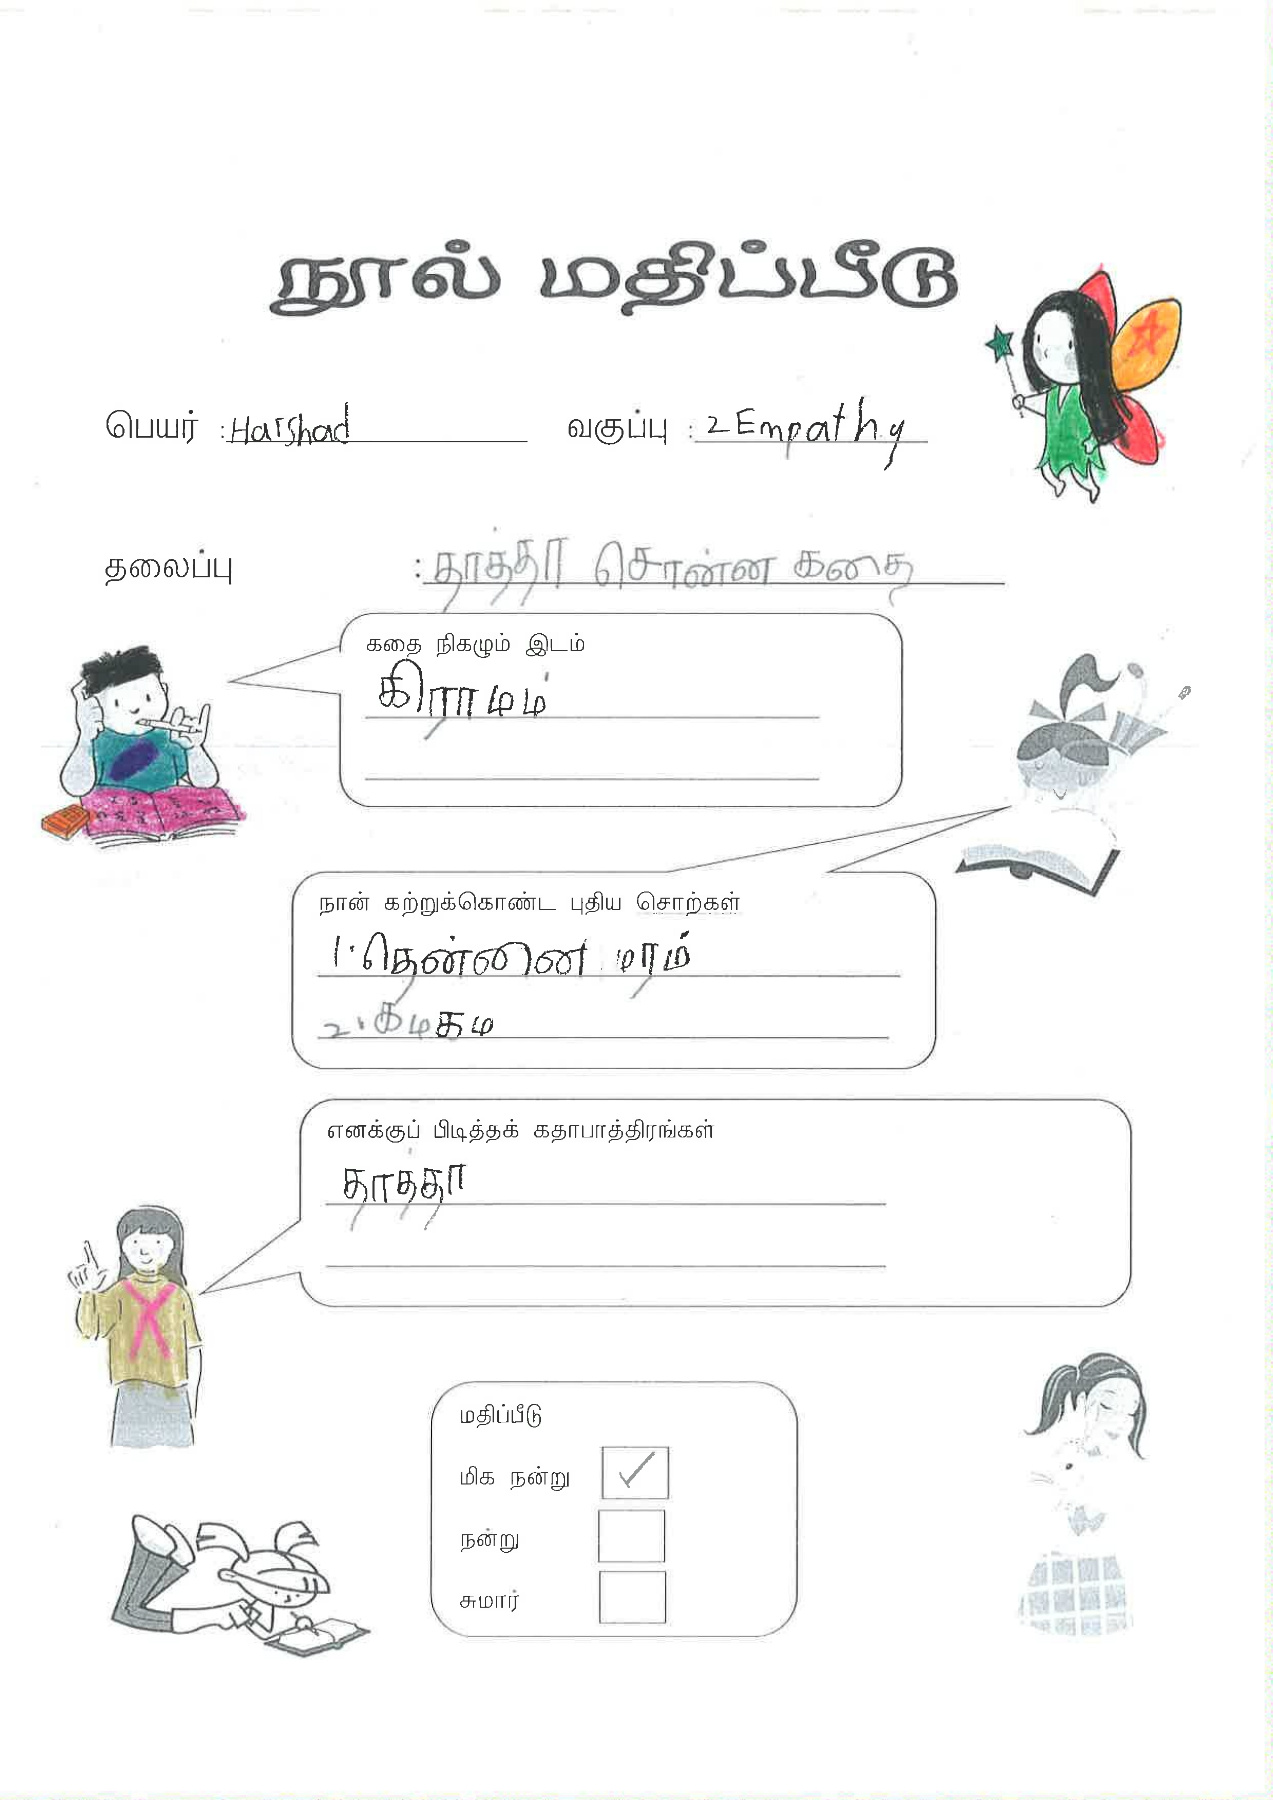 நூல் மதிப்பீடு
பெயர் :Harshad வகுப்பு : 2 Empathy
தலைப்பு : தாத்தா சொன்ன கதை
கதை நிகழும் இடம்
கிராமம்
நான் கற்றுக்கொண்ட புதிய சொற்கள்
1. தென்னை மரம்
2. கமகம
எனக்குப் பிடித்தக் கதாபாத்திரங்கள்
தாத்தா
மதிப்பீடு
மிக நன்று ✓
நன்று
சுமார்